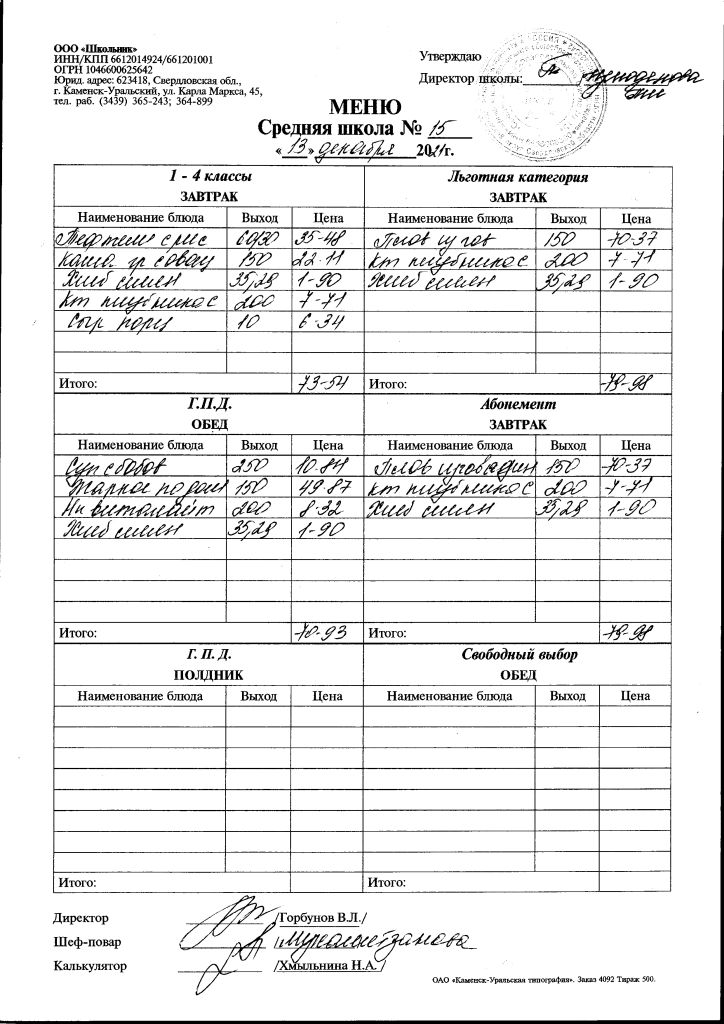 ООО «Школьник»
ИНН/КПП 6612014924/661201001
ОГРН 1046600625642
Юрид. адрес: 623418, Свердловская обл.,
г. Каменск-Уральский, ул. Карла Маркса, 45,
тел. раб. (3439) 365-243; 364-899
Утверждаю
Директор школы:
МЕНЮ
Средняя школа № 15
«13» декабря 2021г.
1 - 4 классы
ЗАВТРАК
Наименование блюда Выход Цена
Тефтели с рис 60/30 35-48
каша гр 150 22-11
Хлеб 35,29 1-90
кт клубника с 200 7-71
Сыр порц 10 6-34
Итого: 73-54
Льготная категория
ЗАВТРАК
Наименование блюда Выход Цена
Плов 150 70-37
кт клубника с 200 7-71
Хлеб 35,29 1-90
Итого: 79-98
Г.П.Д.
ОБЕД
Наименование блюда Выход Цена
Суп с бобов 250 10-84
Жаркое по дом 150 49-87
Нп виталайт 200 8-32
Хлеб 35,29 1-90
Итого: 70-93
Абонемент
ЗАВТРАК
Наименование блюда Выход Цена
Плов 150 70-37
кт клубника с 200 7-71
Хлеб 35,29 1-90
Итого: 79-98
Г. П. Д.
ПОЛДНИК
Наименование блюда Выход Цена
Итого:
Свободный выбор
ОБЕД
Наименование блюда Выход Цена
Итого:
Директор /Горбунов В.Л./
Шеф-повар
Калькулятор /Хмыльнина Н.А. /
ОАО «Каменск-Уральская типография». Заказ 4092 Тираж 500.